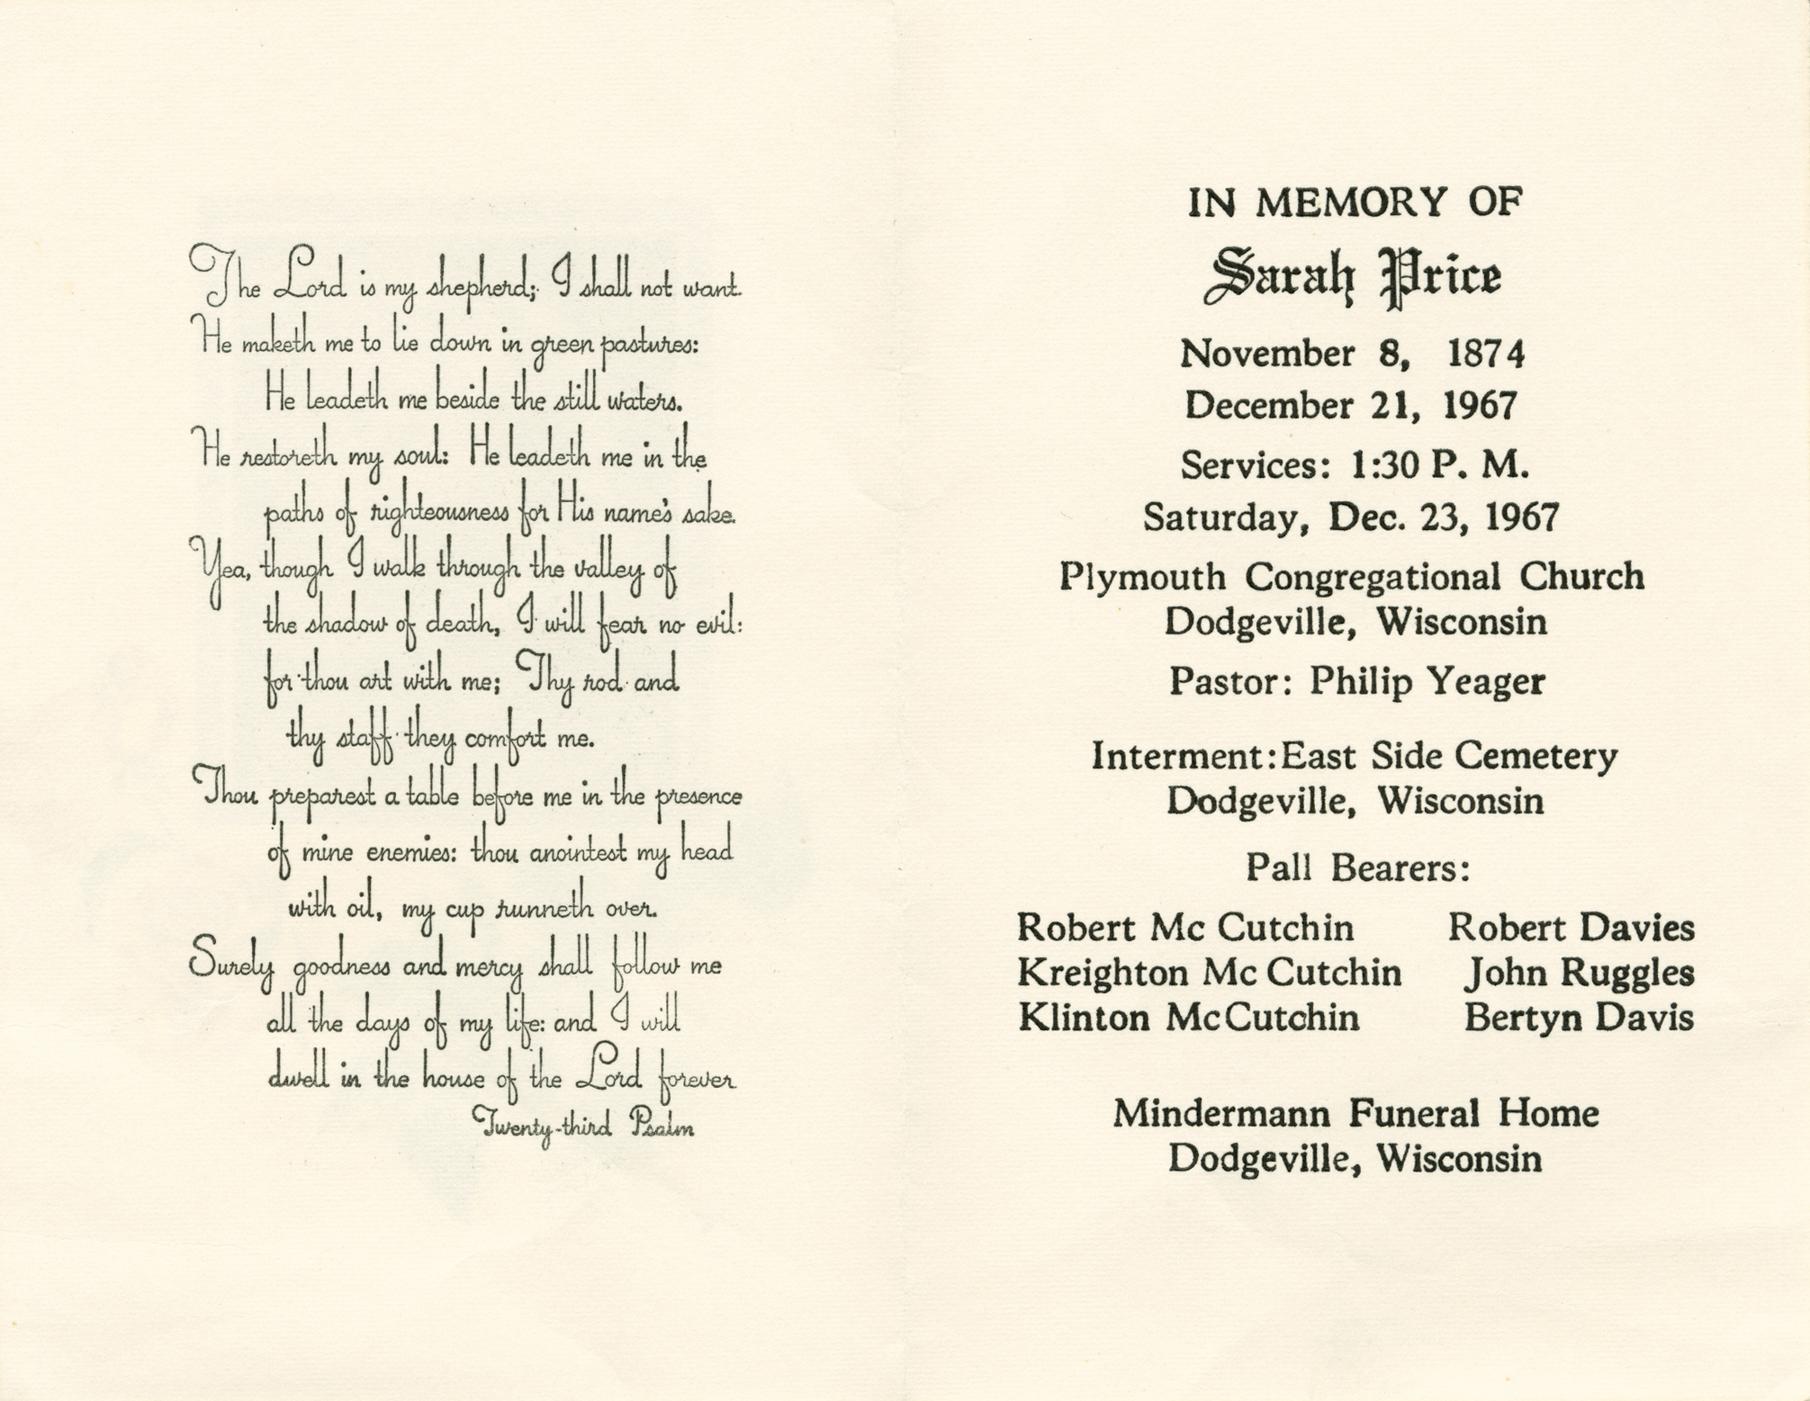 The Lord is my shepherd; I shall not want.
He maketh me to lie down in green pastures:
He leadeth me beside the still waters.
He restoreth my soul: He leadeth me in the
paths of righteousness for His name's sake.
Yea, though I walk through the valley of
the shadow of death, I will fear no evil:
for thou art with me; Thy rod and
thy staff they comfort me.
Thou preparest a table before me in the presence
of mine enemies: thou anointest my head
with oil, my cup runneth over.
Surely goodness and mercy shall follow me
all the days of my life: and I will
dwell in the house of the Lord forever
Twenty-third Psalm
IN MEMORY OF
Sarah Price
November 8, 1874
December 21, 1967
Services: 1:30 P. M.
Saturday, Dec. 23, 1967
Plymouth Congregational Church
Dodgeville, Wisconsin
Pastor: Philip Yeager
Interment:East Side Cemetery
Dodgeville, Wisconsin
Pall Bearers:
Robert Mc Cutchin Robert Davies
Kreighton Mc Cutchin John Ruggles
Klinton McCutchin Bertyn Davis
Mindermann Funeral Home
Dodgeville, Wisconsin